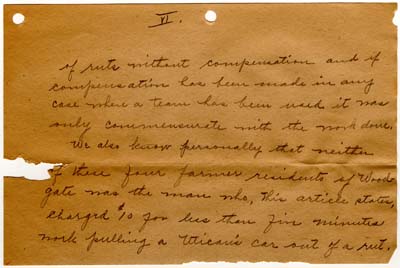 VI.
of ruts without compensation and if
compensation has been made in any
case where a team has been used it was
only commensurate with the work done.
We also know personally that neither
of those four farmer residents of Wood-
gate was the man who, this article states,
charged $10 for less than five minutes
work pulling a Utican's car out of a rut.